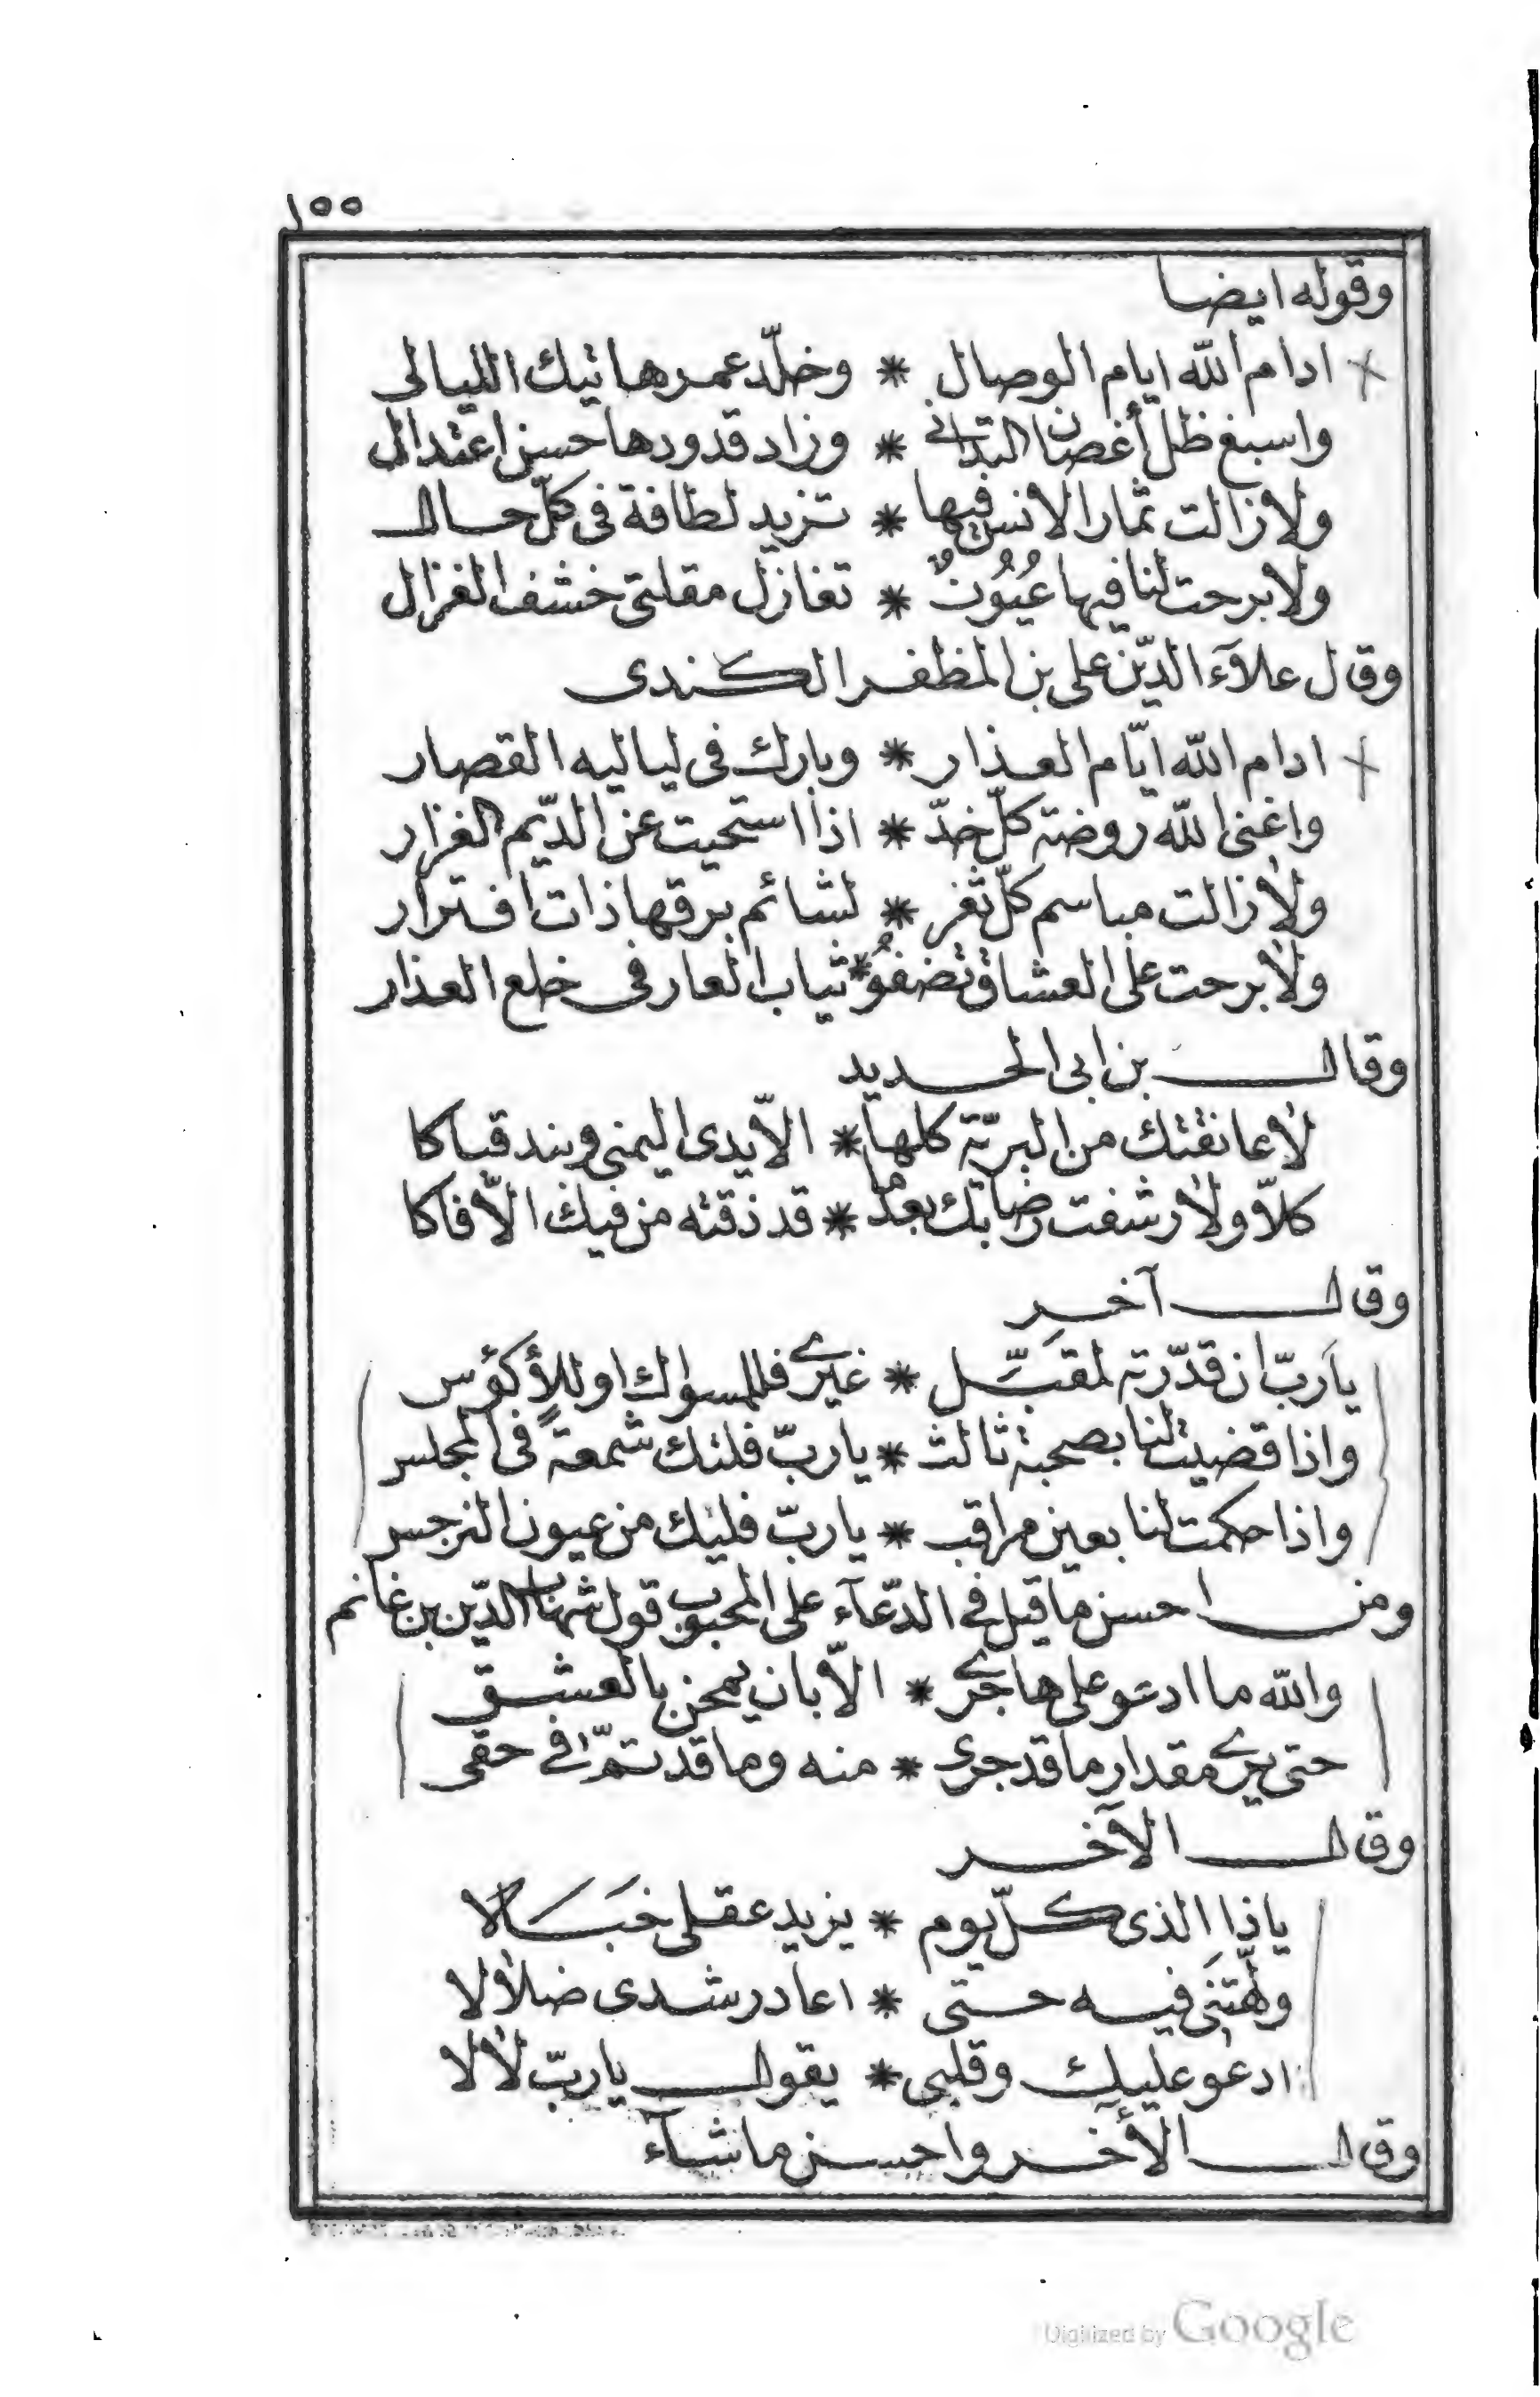 ١٥٥
وقوله ايضا
ادام الله ايام الوصال * وخلّد عمر هاتيك الليالى
واسبغ ظل أغصان التدانى * وزاد قدودها حسن اعتدال
ولا زالت ثمار الانس فيها * تزيد لطافة فى كلّ حال
ولا برحت لنا فيها عُيُونٌ * تغازل مقلتى خشف الغزال
وقال علآء الدّين على بن المظفر الكندى
ادام الله ايّام العذار * وبارك فى لياليه القصار
واغنى الله روضة كلّ خدّ * اذا استحيت عن الدّيم الغزار
ولا زالت مباسم كلّ ثغر * لشائم برقها ذات افترار
ولا برحت على العشاق تضفوُ * ثياب العار فى خلع العذار
وقال بن ابى الحديد
لا عانقتك من البريّة كلها * الّا يدى اليمنى وبند قباكا
كلّا ولا رشفت رضابك بعدما * قد ذقته من فيك الّا فاكا
وقال آخر
ياربّ ان قدّرته لمقبّل * غيرى فللمسواك او للأكؤس
واذا قضيت لنا بصحبة ثالث * ياربّ فلتك شمعةً فى المجلس
واذا حكمت لنا بعين مراقب * ياربّ فليك من عيون النرجس
ومن احسن ما قيل فى الدّعآء على المحبوب قول شهاب الدّين بن غانم
والله ما ادعو على هاجرى * الّا بان يمحن بالعشق
حتى يرى مقدار ما قد جرى * منه وما قد تمّ فى حقى
وقال الآخر
ياذا الذى كلّ يوم * يزيد عقلى خبَالا
ولّهتنى فيه حتى * اعاد رشدى ضلالا
ادعو عليك وقلبى * يقول ياربّ لا لا
وقال الآخر واحسن ما شآء
Digitized by Google